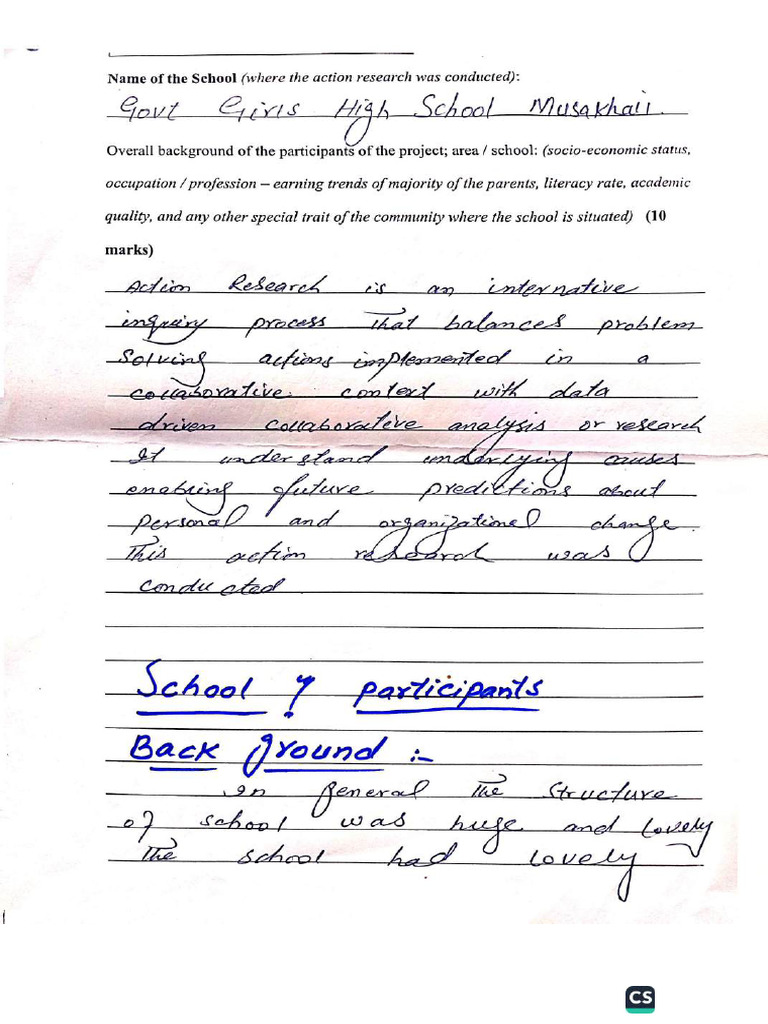 Name of the School (where the action research was conducted):
Govt Girls High School Musakhail.
Overall background of the participants of the project; area / school: (socio-economic status,
occupation / profession – earning trends of majority of the parents, literacy rate, academic
quality, and any other special trait of the community where the school is situated) (10
marks)
Action Research is an internative
inquiry process That balances problem
Solving actions implemented in a
collaborative context with data
driven collaborative analysis or research
It understand underlying causes
enabling future predictions about
personal and organizational change.
This action research was
conducted
School & participants
Back ground :-
In general The structure
of school was huge and lovely
The school had lovely
CS